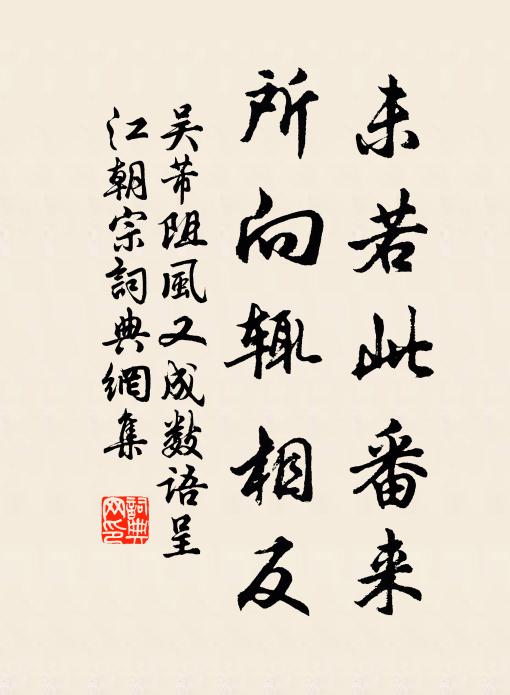 未若此番来
所向辄相反
吴芾阻風又成数语呈
江朝宗詞典網集
詞典网印